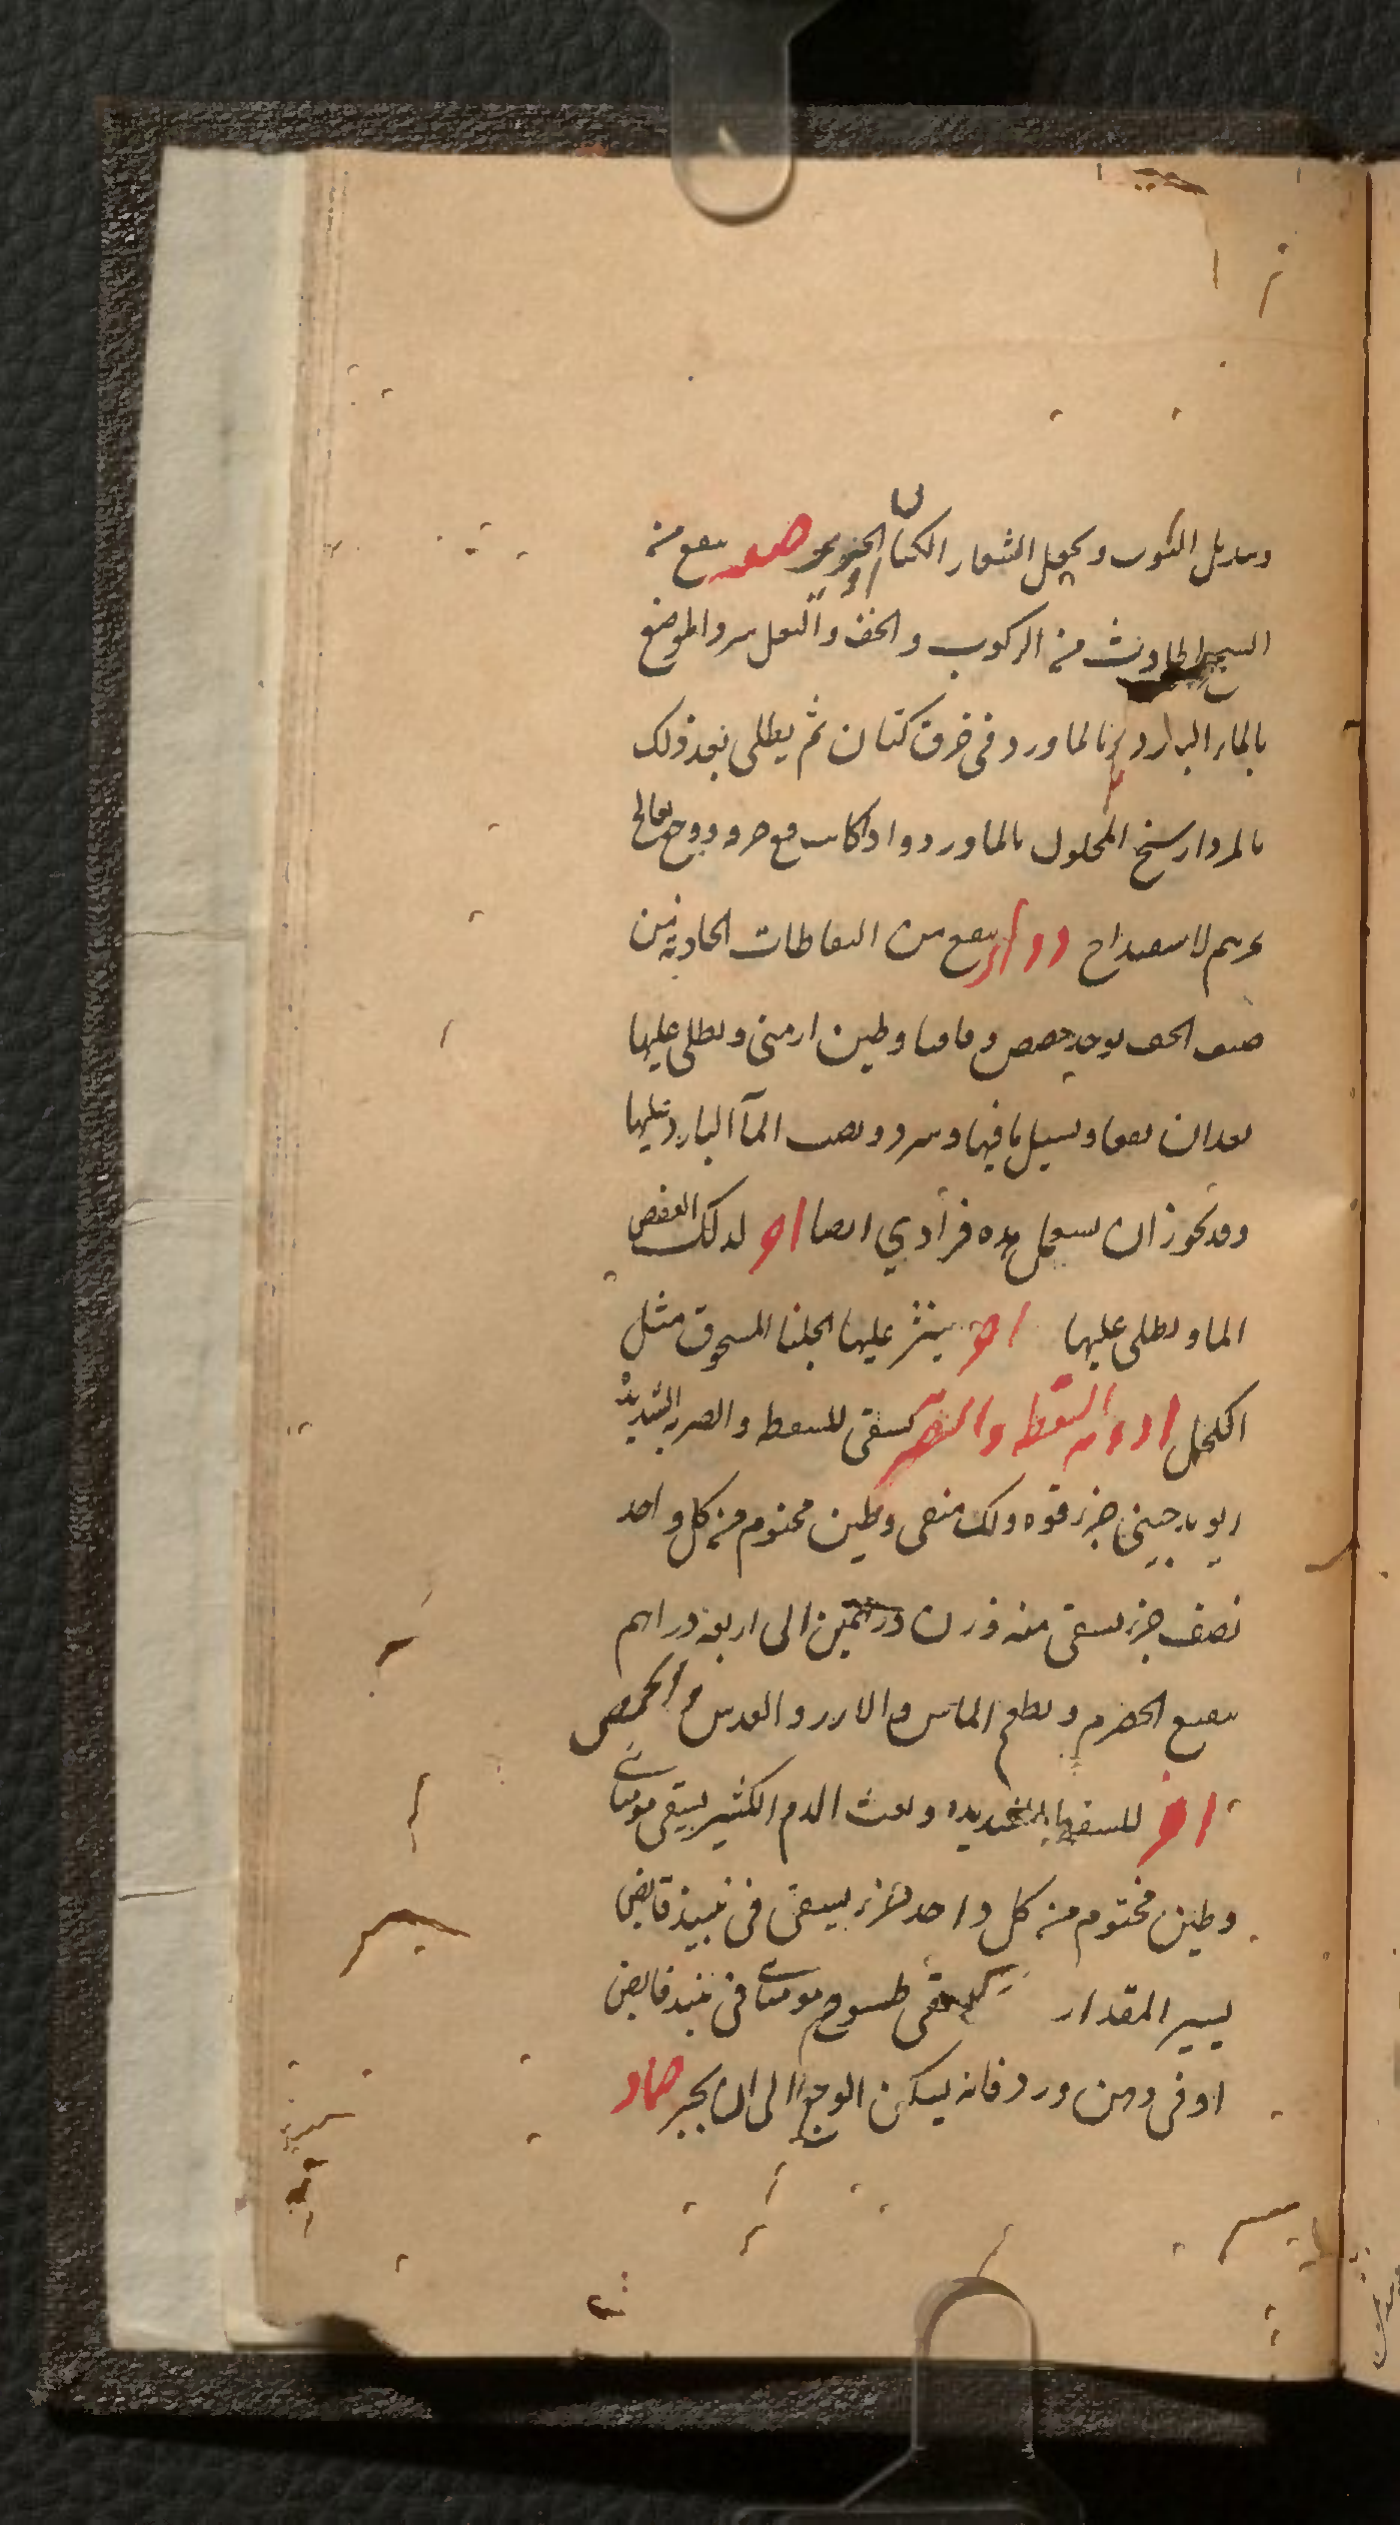 وتبديل الثوب ويجعل الشعار الكتان ينفع من
السحج الحادث من الركوب والخف والنعل يبرد الموضع
بالماء البارد بالماورد في خرق كتان ثم يطلى بعد ذلك
بالمردارسنج المحلول بالماورد واذا كانت مع حرقة ووجع تعالج
بمرهم الاسفيداج دوا اخر ينفع من النفاطات الحادثة من
ضيق الخف يوخذ حضض و واقاقيا وطين ارمني ويطلى عليها
بعد ان تفقا ويسيل ما فيها ويبرد ويصب المآ البارد عليها
وقد يجوز ان يستعمل هذه فرادي ايضا اخر لذلك العفص
الما ويطلى عليها اخر ينثر عليها الجلنا المسحوق مثل
الكحل ادوية السقطة والضربة يسقى للسقطة والضربة الشديدة
ريوند صيني جزء فوه ولك منقى وطين مختوم من كل واحد
نصف جزء يسقى منه وزن درهمين الى اربعة دراهم
بنقيع الحصرم ويطعم الماش والارز والعدس والحمص
اخر للسقطة الشديدة ونفث الدم الكثير يسقى مومياى
وطين مختوم من كل واحد جزء يسقى في نبيذ قابض
يسير المقدار يسقى طسوج مومياى في نبيذ قابض
او في دهن ورد فانه يسكن الوجع الى ان يجبر ضماد